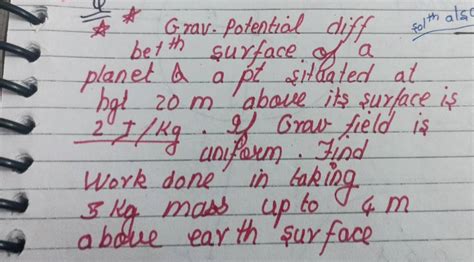 Q
Grav. Potential diff
folth also
betth surface of a
planet & a pt situated at
hgt 20 m above its surface is
2 J/kg. If Grav field is
uniform. Find
Work done in taking
5 kg mass up to 4 m
above earth surface